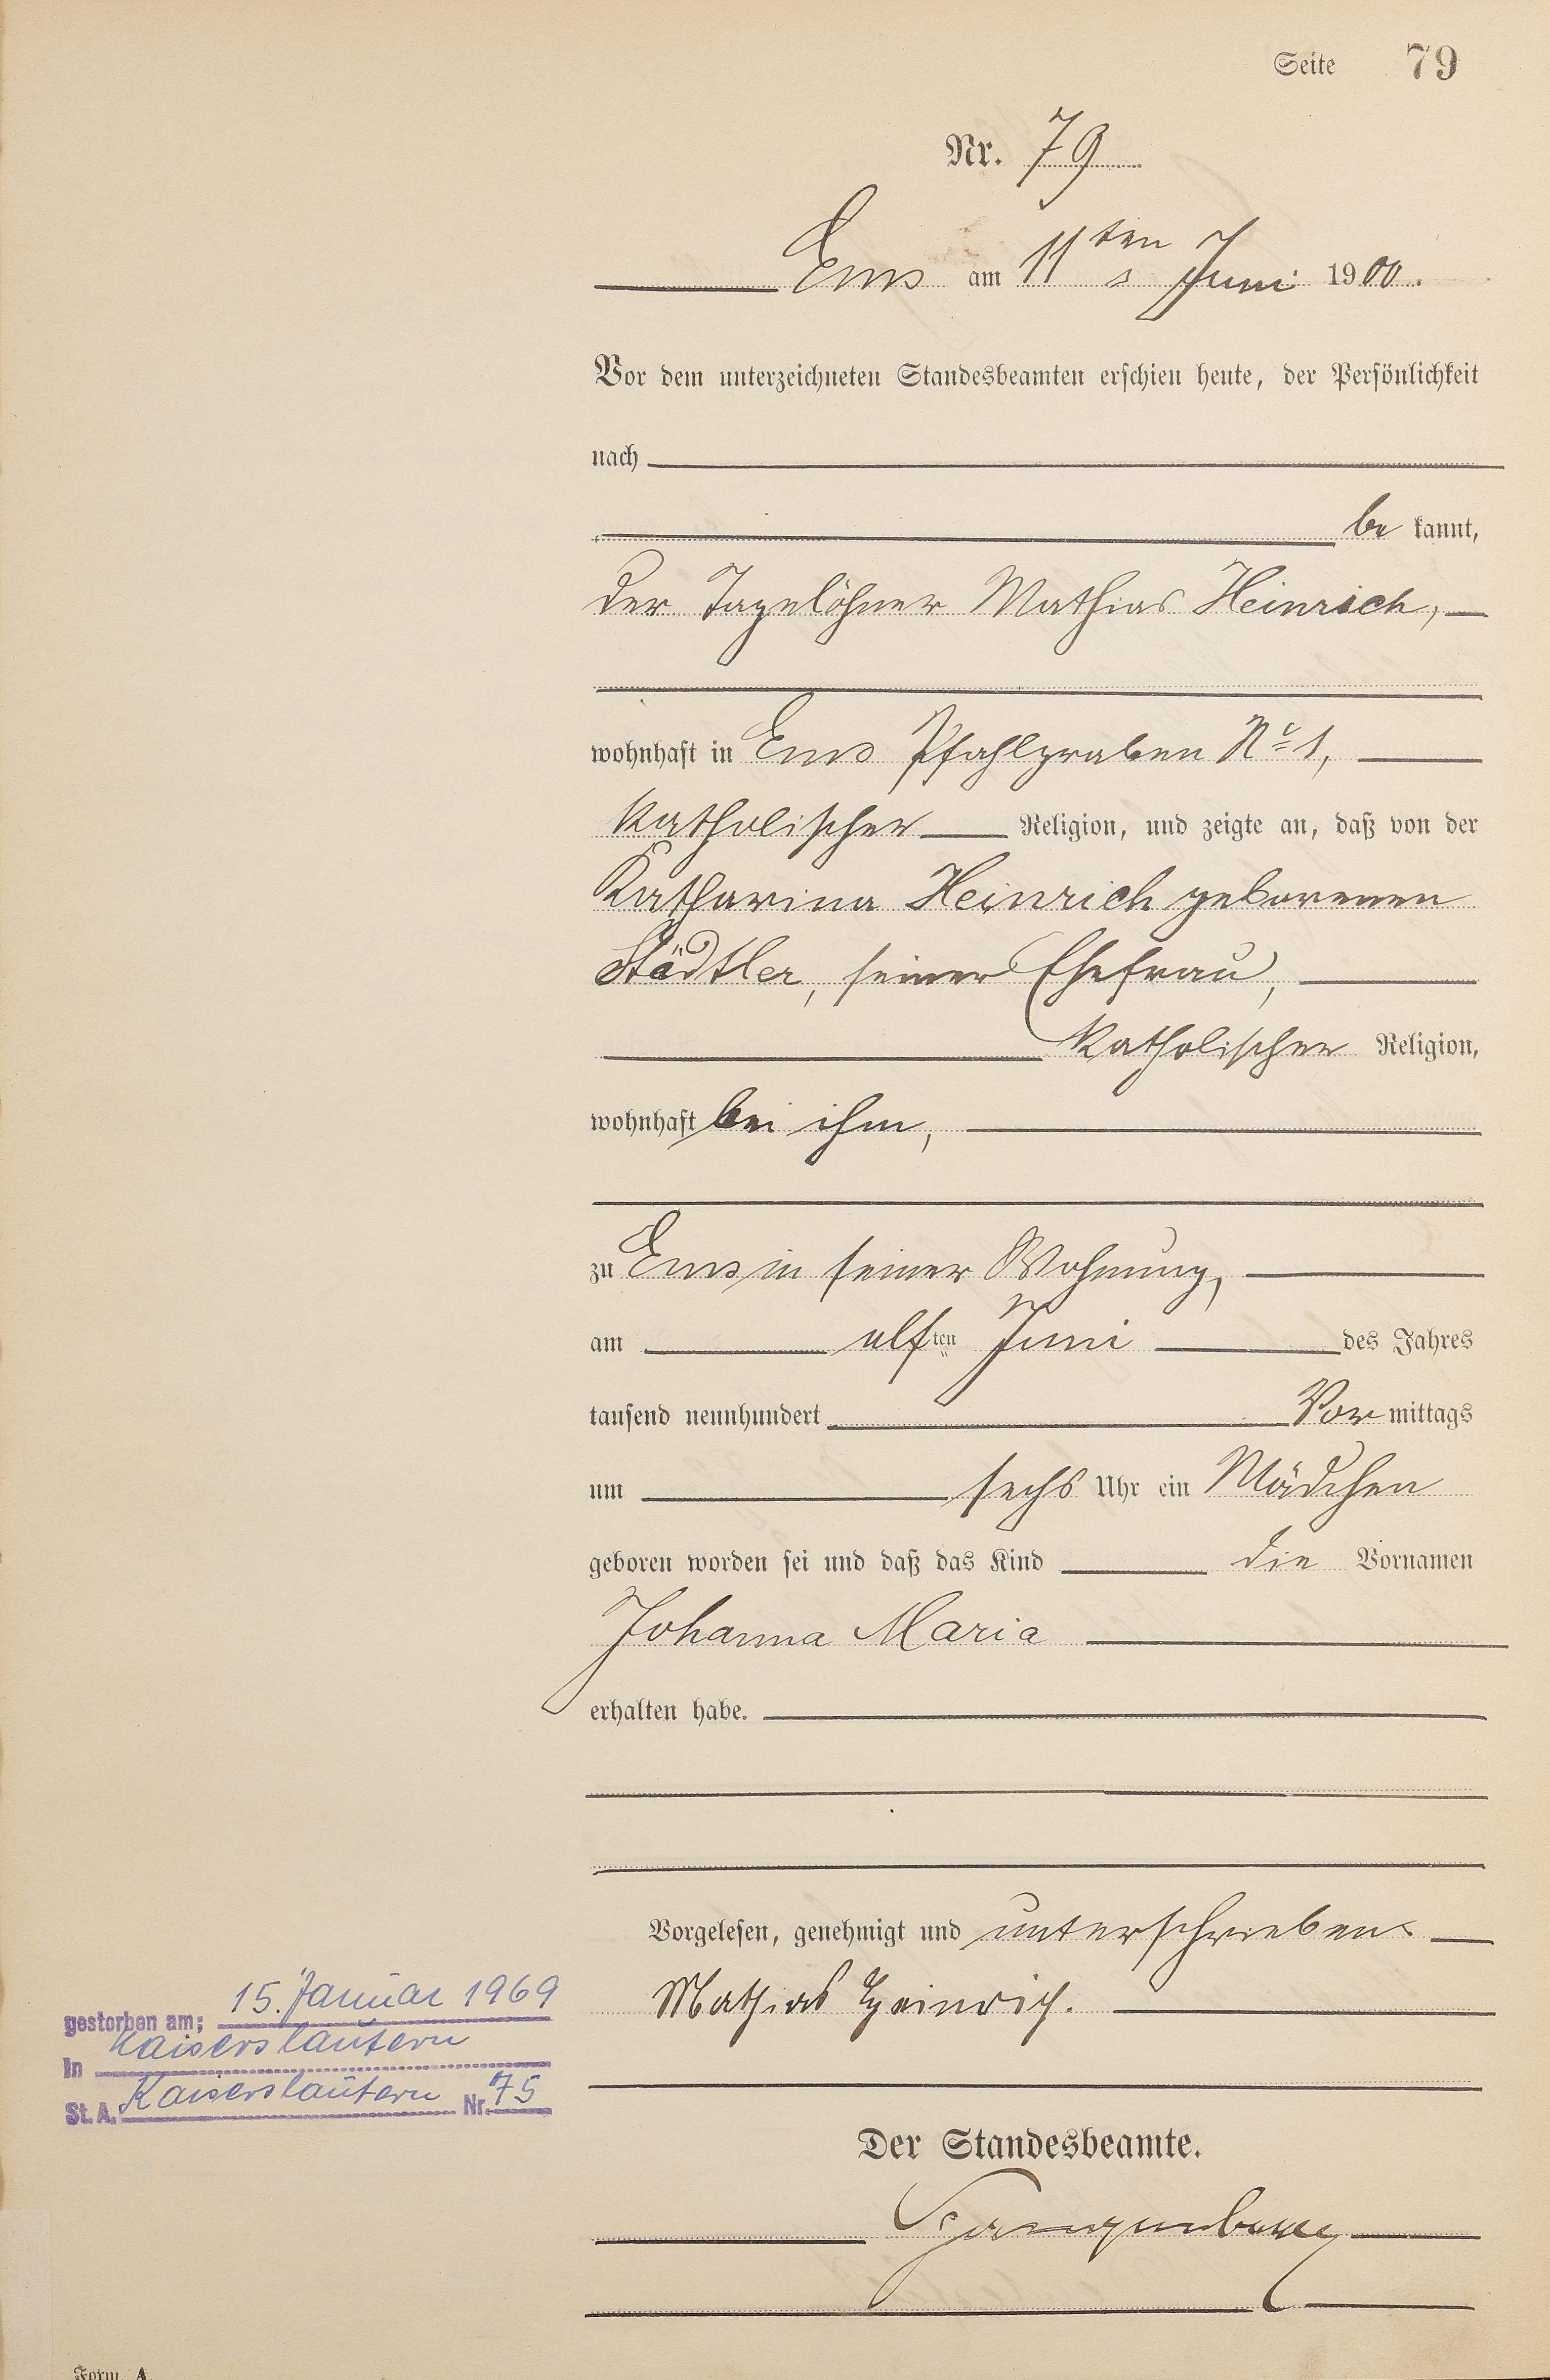 Seite 79
Nr. 79
Ems am 11ten Juni 1900.
Vor dem unterzeichneten Standesbeamten erschien heute, der Persönlichkeit
nach
be kannt,
der Tagelöhner Mathias Heinrich,
wohnhaft in Ems Pfahlgraben No 1,
katholischer Religion, und zeigte an, daß von der
Katharina Heinrich geborenen
Städtler, seiner Ehefrau,
katholischer Religion,
wohnhaft bei ihm,
zu Ems in seiner Wohnung,
am elften Juni des Jahres
tausend neunhundert Vor mittags
um sechs Uhr ein Mädchen
geboren worden sei und daß das Kind die Vornamen
Johanna Maria
erhalten habe.
Vorgelesen, genehmigt und unterschrieben
Mathias Heinrich.
Der Standesbeamte.
gestorben am: 15. Januar 1969
In Kaiserslautern
St. A. Kaiserslautern Nr. 75
Form. A.